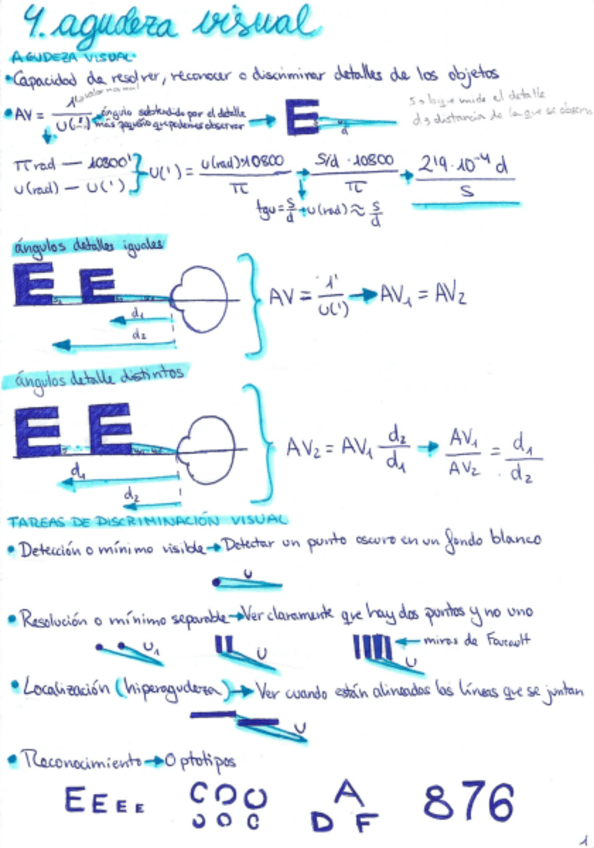 4. agudeza visual
AGUDEZA VISUAL:
•Capacidad de resolver, reconocer o discriminar detalles de los objetos
•AV = 1' → valor normal / u(') → ángulo subtendido por el detalle más pequeño que podemos observar → E s u d
s → lo que mide el detalle
d → distancia de la que se observa
π rad — 10800'
u(rad) — u(') } u(') = u(rad)·10800 / π → s/d · 10800 / π → 2'9·10⁻⁴ d / s
tgu = s/d → u(rad) ≈ s/d
ángulos detalles iguales
E E
d₁
d₂
AV = 1' / u(') → AV₁ = AV₂
ángulos detalle distintos
E E
d₁
d₂
AV₂ = AV₁ d₂/d₁ → AV₁/AV₂ = d₁/d₂
TAREAS DE DISCRIMINACIÓN VISUAL
• Detección o mínimo visible → Detectar un punto oscuro en un fondo blanco
u
• Resolución o mínimo separable → Ver claramente que hay dos puntos y no uno
u₁ u u ← miras de Foucault
• Localización (hiperagudeza) → Ver cuando están alineadas las líneas que se juntan
u
• Reconocimiento → Optotipos
E E E E C O O A 876
D F
1